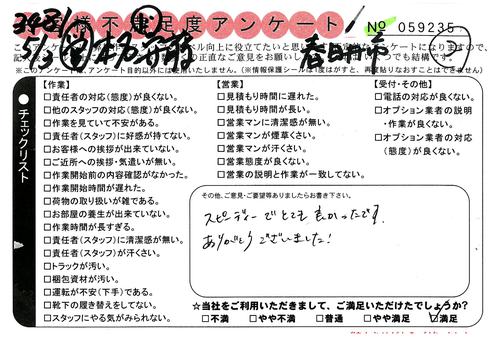 お客様不満足度アンケート
No 059235
春日部市
このアンケートは、アンケート目的以外には使用いたしません。(※情報保護シール1度はがすと、再度貼りなおすことはできません)
チェックリスト
【作業】
□責任者の対応(態度)が良くない。
□他のスタッフの対応(態度)が良くない。
□作業を見ていて不安がある。
□責任者(スタッフ)に好感が持てない。
□お客様への挨拶が出来ていない。
□ご近所への挨拶・気遣いが無い。
□作業開始前の内容確認がなかった。
□作業開始時間が遅れた。
□荷物の取り扱いが雑である。
□お部屋の養生が出来ていない。
□作業時間が長すぎる。
□責任者(スタッフ)に清潔感が無い。
□責任者(スタッフ)が汗くさい。
□トラックが汚い。
□梱包資材が汚い。
□運転が不安(下手)である。
□靴下の履き替えをしてない。
□スタッフにやる気がみられない。
【営業】
□見積もり時間に遅れた。
□見積もり時間が長い。
□営業マンに清潔感が無い。
□営業マンが煙草くさい。
□営業マンが汗くさい。
□営業態度が良くない。
□営業の説明と作業が一致してない。
【受付・その他】
□電話の対応が良くない。
□オプション業者の説明・作業が良くない。
□オプション業者の対応(態度)が良くない。
その他、ご意見・ご要望等ありましたらお書き下さい。
スピーディーでとても良かったです。
ありがとうございました!
☆当社をご利用いただきまして、ご満足いただけたでしょうか?
□不満 □やや不満 □普通 □やや満足 ☑満足